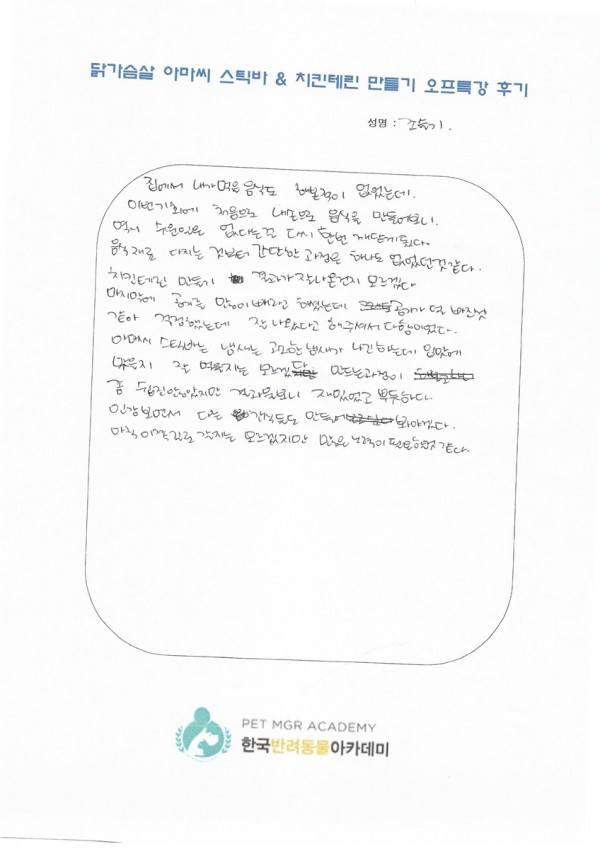 닭가슴살 아마씨 스틱바 & 치킨테린 만들기 오프특강 후기
성명 :
집에서 내가 먹을 음식도 해본적이 없었는데.
이번기회에 처음으로 내손으로 음식을 만들어보니.
역시 쉬운일은 없다는걸 다시 한번 깨닫게 됬다.
음식재료 다지는 것부터 간단한 과정은 하나도 없었던것 같다.
치킨테린 만들기 결과가 잘 나온건지 모르겠다
마지막에 공기를 많이 빼라고 했었는데 공기가 덜 빠진것
같아 걱정했는데 잘 나왔다고 해주셔서 다행이었다.
아마씨 스틱바는 냄새는 고소한 냄새가 나긴하는데 입맛에
맞을지 잘 먹을지는 모르겠다 만드는과정이
좀 쉽진않았지만 결과물보니 재밌었고 뿌듯하다.
인강보면서 다른 간식들도 만들어 봐야겠다.
아직 이쪽으로 갈지는 모르겠지만 많은 노력이 필요한것 같다.
PET MGR ACADEMY
한국반려동물아카데미